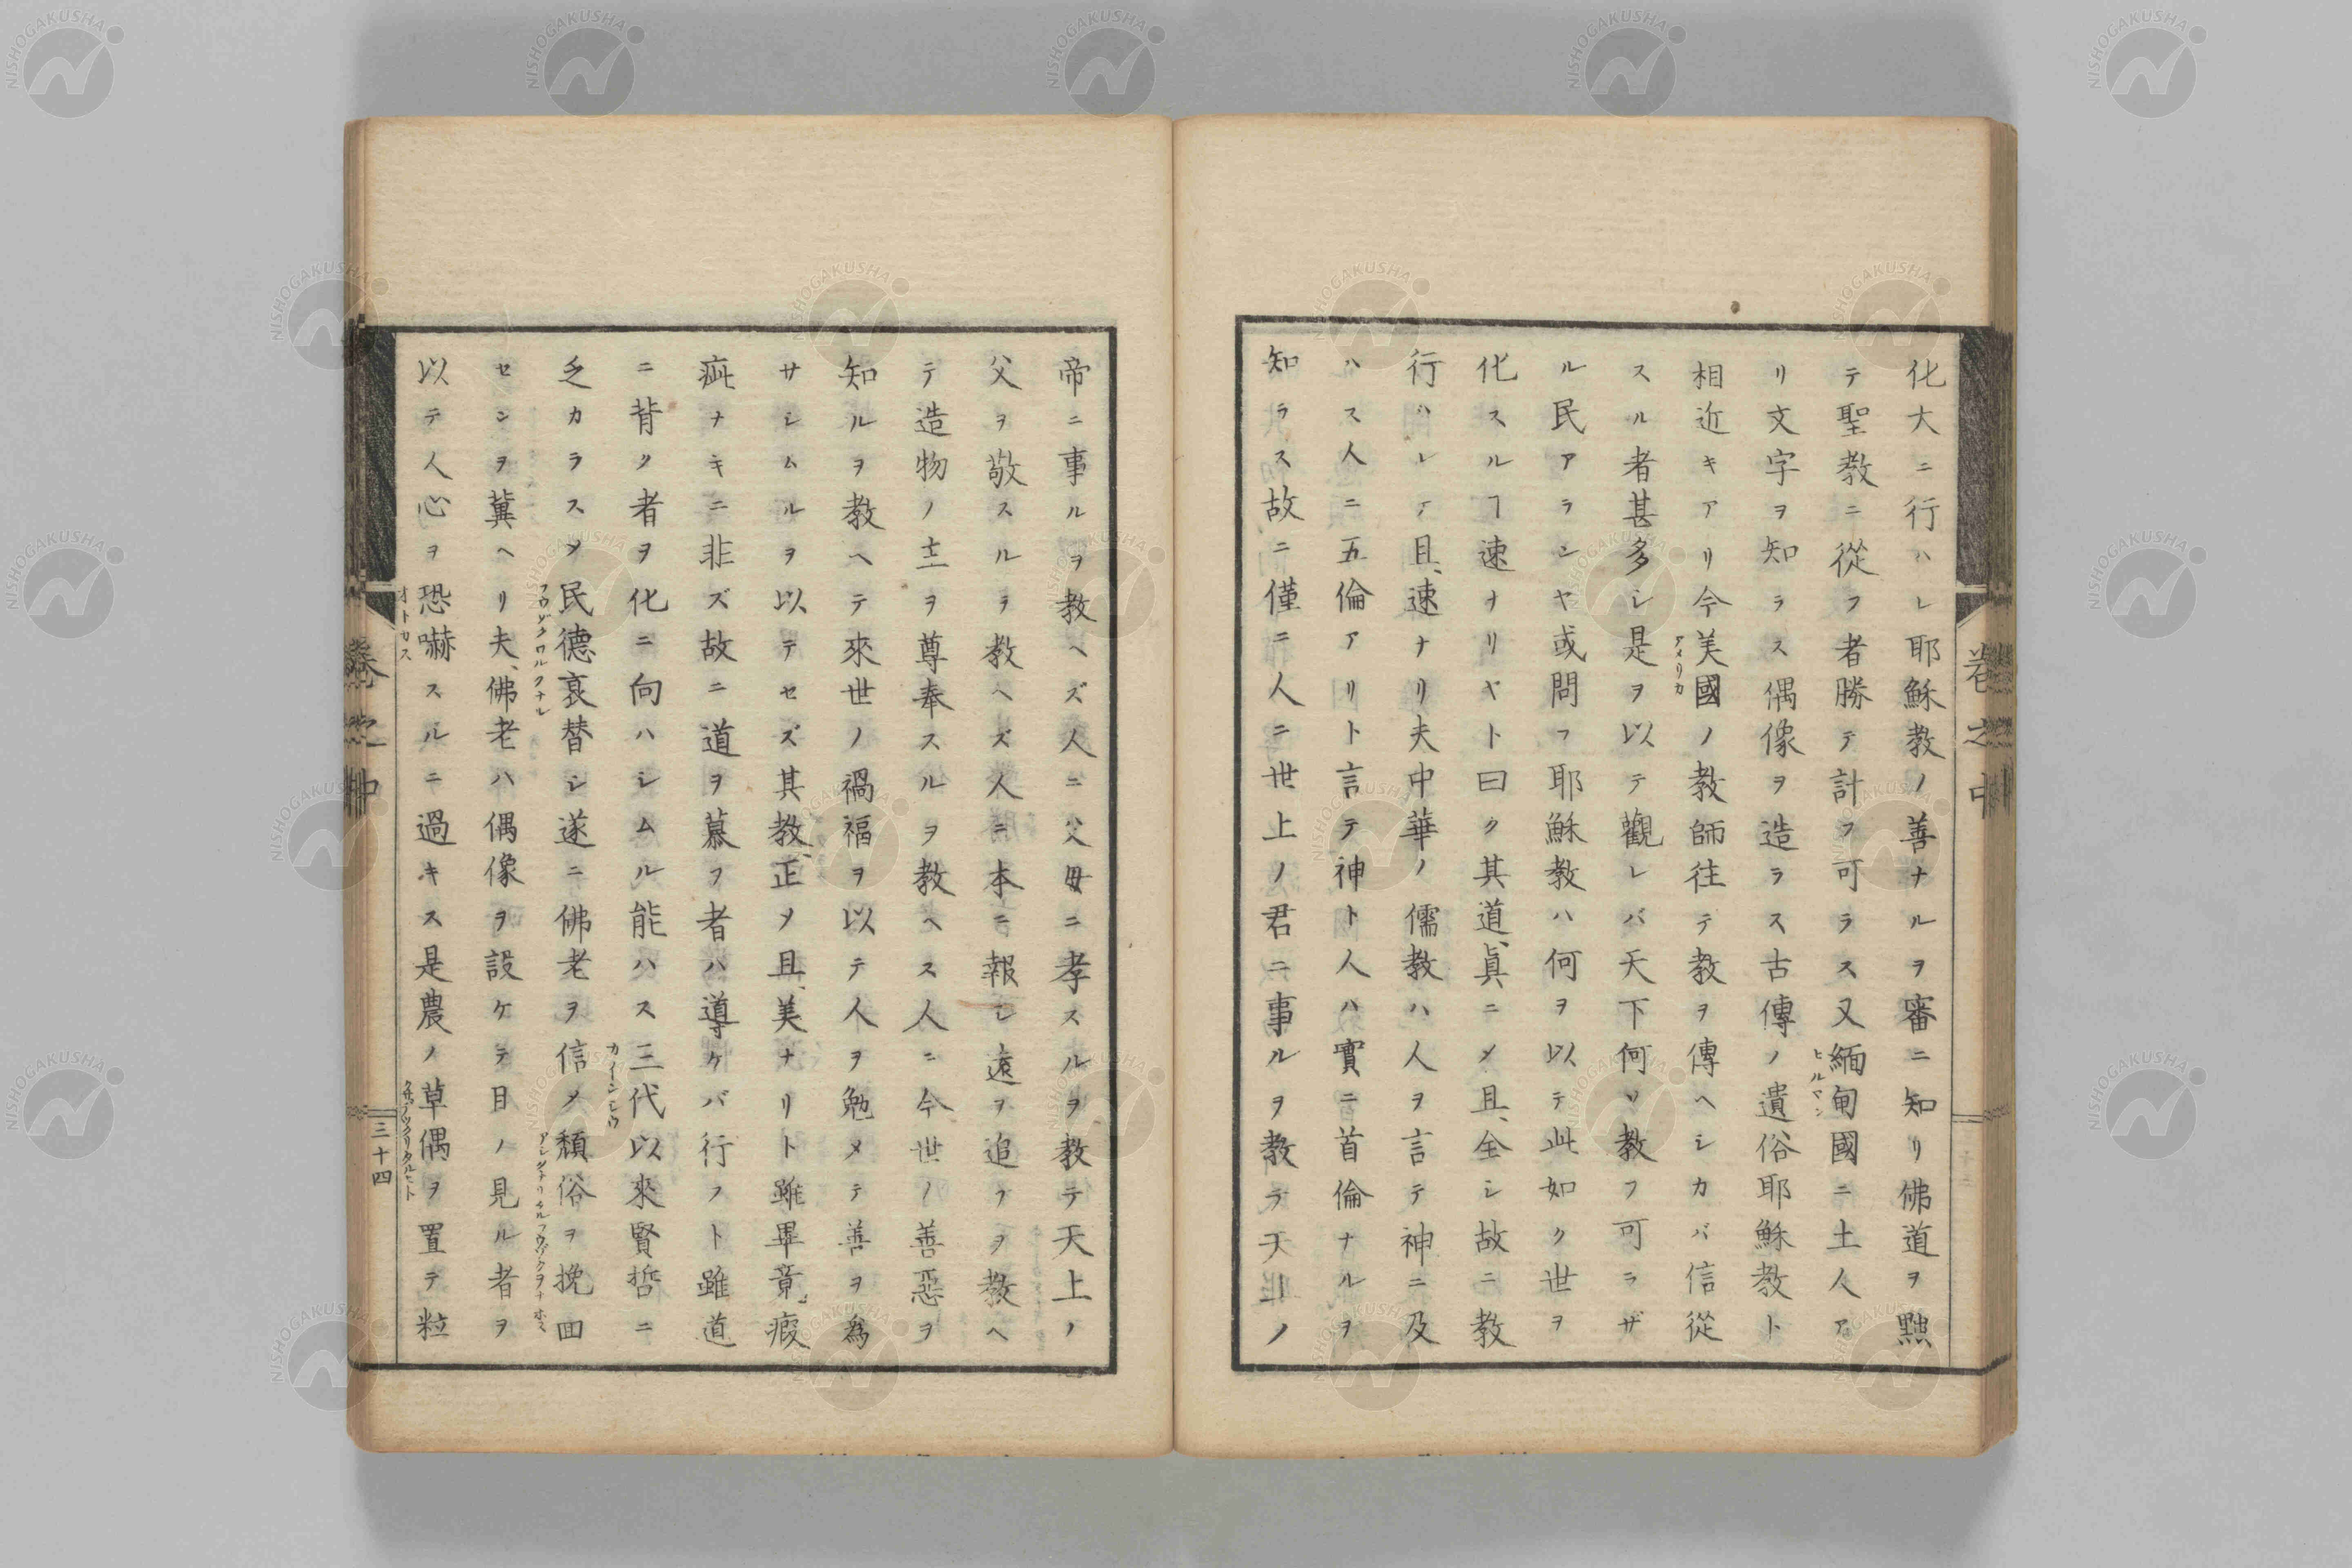 化大ニ行ハレ耶穌教ノ善ナルヲ審ニ知リ佛道ヲ黜
テ聖教ニ從フ者勝テ計フ可ラス又緬甸國ニ土人ア
ヒルマン
リ文字ヲ知ラス偶像ヲ造ラス古傳ノ遺俗耶穌教ト
相近キアリ今美國ノ教師往テ教ヲ傳ヘシカバ信從
アメリカ
スル者甚多シ是ヲ以テ觀レバ天下何ソ教フ可ラザ
ル民アラシヤ或問フ耶穌教ハ何ヲ以テ此如ク世ヲ
化スルヿ速ナリヤト曰ク其道、眞ニメ且、全シ故ニ教
行ハレテ且、速ナリ夫中華ノ儒教ハ人ヲ言テ神ニ及
ハス人ニ五倫アリト言テ神ト人ハ實ニ首倫ナルヲ
知ラス故ニ僅ニ人ニ世上ノ君ニ事ルヲ教テ天上ノ
卷之中
帝ニ事ルヲ教ヘズ人ニ父母ニ孝スルヲ教テ天上ノ
父ヲ敬スルヲ教ヘズ人ニ本ニ報シ遠ヲ追フヲ教ヘ
テ造物ノ主ヲ尊奉スルヲ教ヘス人ニ今世ノ善惡ヲ
知ルヲ教ヘテ來世ノ禍福ヲ以テ人ヲ勉メテ善ヲ為
サシムルヲ以テセズ其教、正メ且、美ナリト雖畢竟瑕
疵ナキニ非ズ故ニ道ヲ慕フ者ハ導ケバ行フト雖道
ニ背ク者ヲ化ニ向ハシムル能ハス三代以來賢哲ニ
カイーンシウ
乏カラスメ民德衰替シ遂ニ佛老ヲ信メ頽俗ヲ挽回
フウゾクワルクナル
アシクナリタルフウゾクヲナホス
センヲ冀ヘリ夫、佛老ハ偶像ヲ設ケテ目ノ見ル者ヲ
以テ人心ヲ恐嚇スルニ過キス是農ノ草偶ヲ置テ粒
オトカス
卷之中
三十四
NISHOGAKUSHA